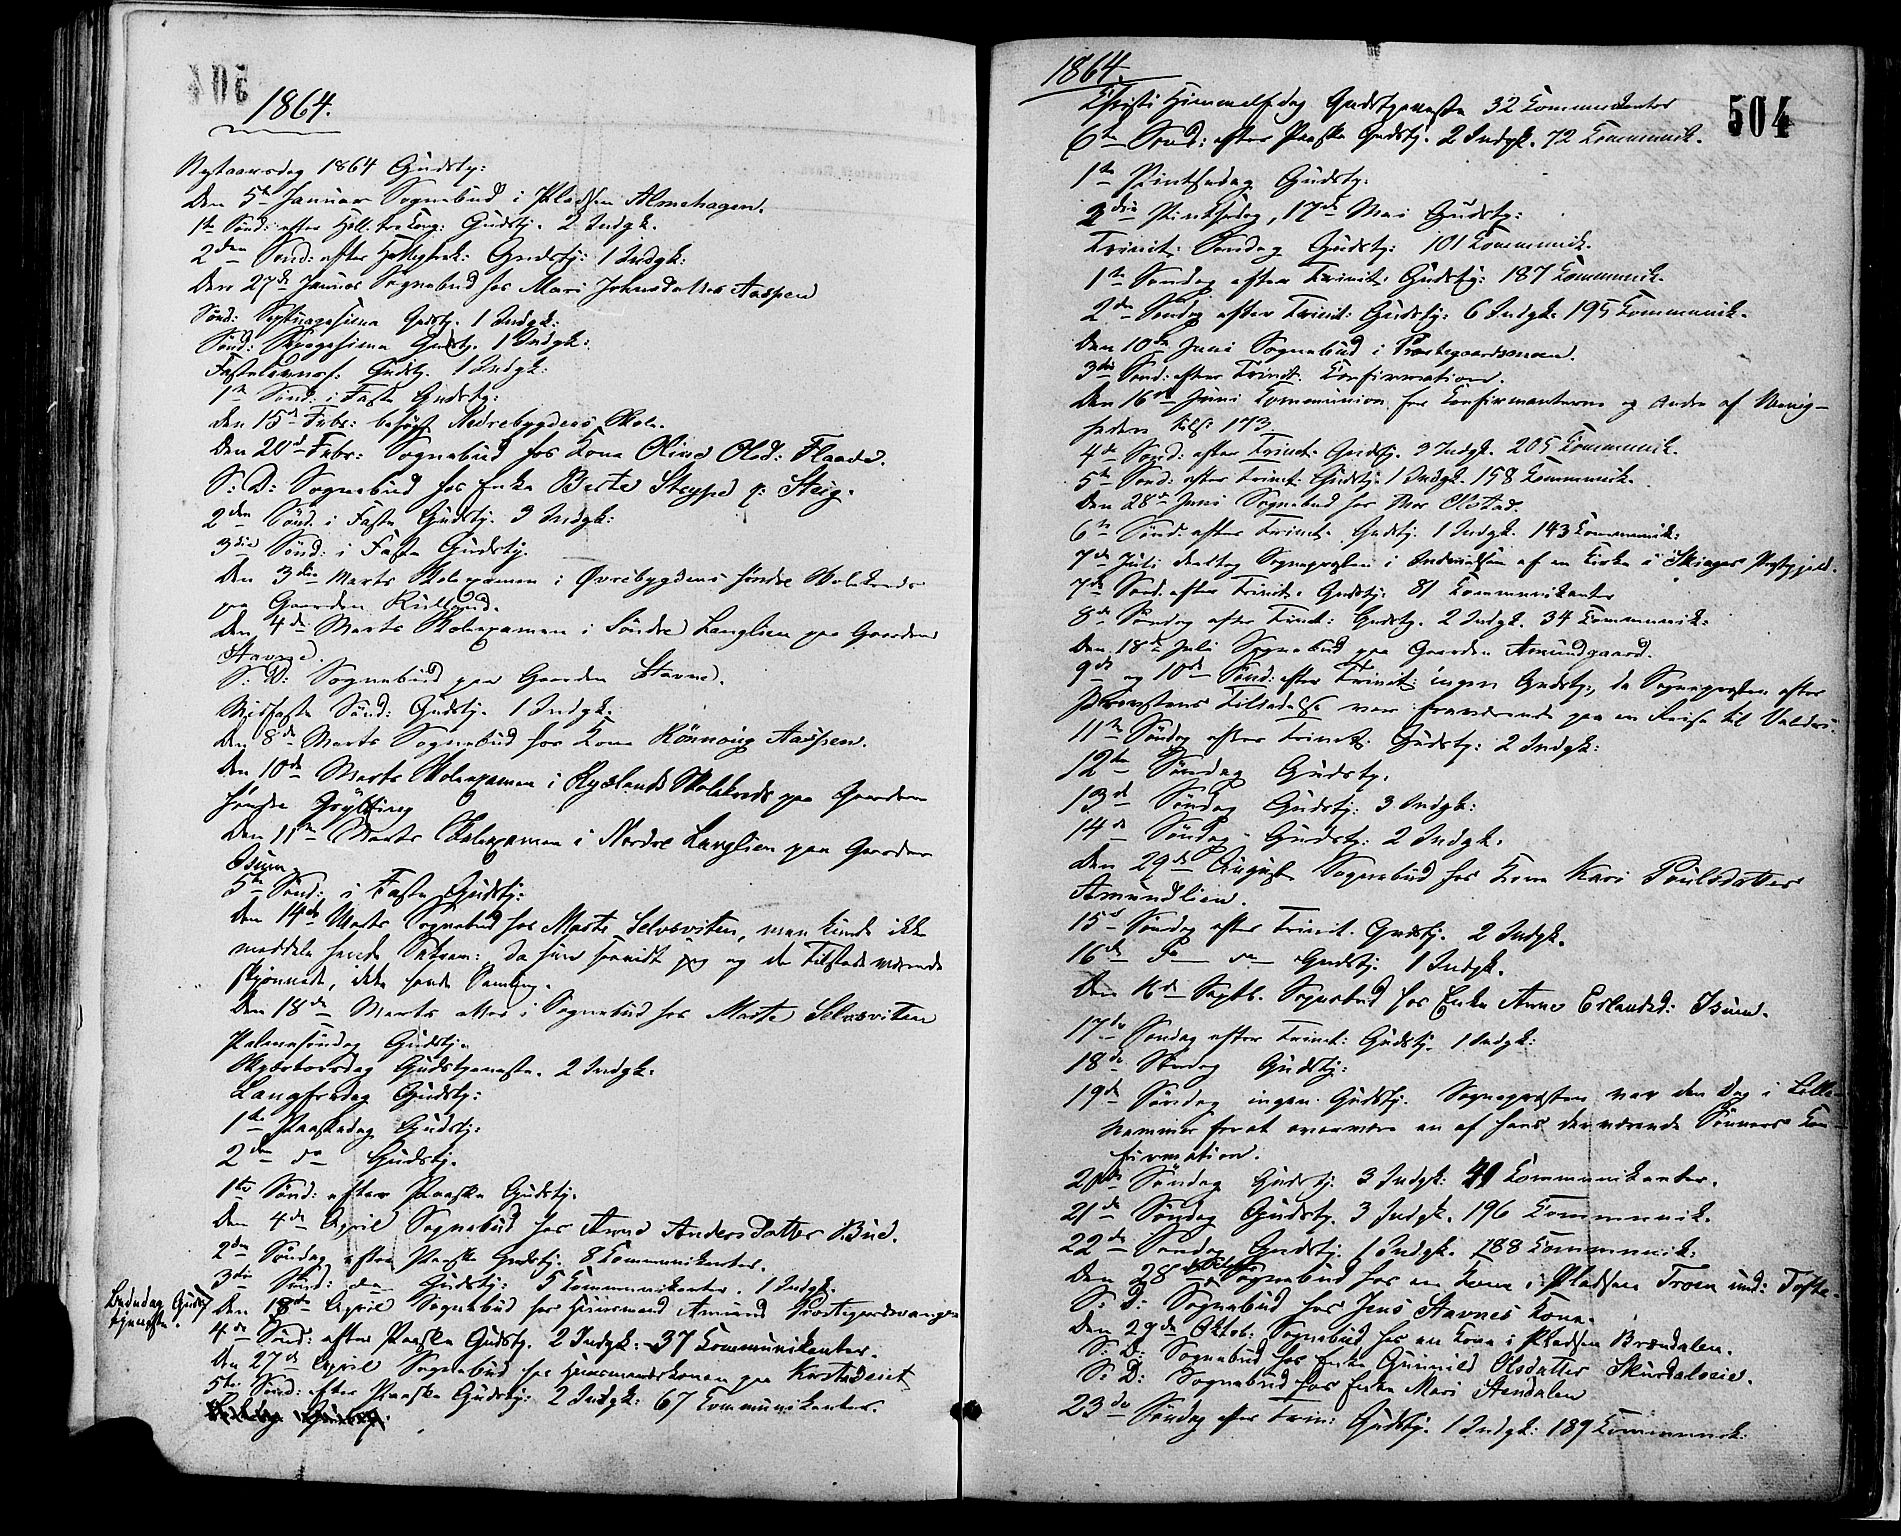 1864.
Nytaarsdag 1864 Gudstj:
Den 5te Januar Sognebud i Pladsen Almehagen.
1te Sønd: efter Hell. tre Kong: Gudstj. 2 Indgk.
2den Sønd: efter Gudstj: 1 Indgk:
Den 27de Januar Sognebud hos Mari Johnsdatter Aaspen
Sønd: Septuagesima Gudstj. 1 Indgk:
Sønd: Sexagesima Gudstj. 1 Indgk:
Fastelavns: Gudstj. 1 Indgk:
1te Sønd: i Faste Gudstj:
Den 15de Febr: besøgt Nedrebygdens Skole.
Den 20de Febr: Sognebud hos Kone Oline Olsd: Flaade.
S: D: Sognebud hos Enke Berte p: Steig.
2den Sønd. i Faste Gudstj. 3 Indgk:
3die Sønd: i Faste Gudstj.
Den 3die Marts Skoleexamen i Øvrebygdens søndre Skolekreds
paa Gaarden
Den 4de Marts Skoleexamen i Søndre Langlien paa Gaarden
Stavne.
S: D: Sognebud paa Gaarden Stavne.
Midfaste Sønd: Gudstj. 1 Indgk.
Den 8de Marts Sognebud hos Kone Rønnoug Aaspen.
Den 10de Marts Skoleexamen i Skolekreds paa Gaarden
søndre Grytting
Den 11te Marts Skoleexamen i Nordre Langlien paa Gaarden
Isum
5te Sønd: i Faste Gudstj:
Den 14de Marts Sognebud hos Marte Selvsviten, man kunde ikke
meddele hende Sakram: da hun saavidt jeg og de Tilstedeværende
skjønnede, ikke havde Samling.
Den 18de Marts atter i Sognebud hos Marte Selvsviten
Palmesøndag Gudstj.
Skjærtorsdag Gudstjeneste. 2 Indgk.
Langfredag Gudstj:
1te Paaskedag Gudstj:
2den do Gudstj.
1te Sønd: efter Paaske Gudstj.
Den 4de April Sognebud hos Anne Andersdatter Bue.
2den Søndag efter Paaske Gudstj. 8 Kommunikanter.
3die Sønd: do Gudstj: 5 Kommunikanter. 1 Indgk.
Bededag Gudstjeneste.
Den 18de April Sognebud hos Huusmand Amund Præstegaardsvangen
4de Sønd: efter Paaske Gudstj. 2 Indgk: 37 Kommunikanter.
Den 27de April Sognebud hos Huusmandskonen paa
5te Sønd: efter Paaske Gudstj: 2 Indgk: 67 Kommunikanter.
504
1864.
Christi Himmelf.dag Gudstjeneste 32 Kommunikanter
6te Sønd: efter Paaske Gudstj. 2 Indgk. 72 Kommunik.
1te Pintsedag Gudstj.
2den Pintsedag, 17de Mai Gudstj:
Trinit: Søndag Gudstj: 101 Kommunik.
1te Søndag efter Trinit: Gudstj: 187 Kommunik.
2den Søndag efter Trinit: Gudstj: 6 Indgk. 195 Kommunik.
Den 10de Juni Sognebud i Præstegaardsmoen.
3die Sønd: efter Trinit: Confirmation.
Den 16de Juni Kommunion for Konfirmanterne og Andre af Menig-
heden tils: 173
4de Sønd: efter Trinit: Gudstj. 2 Indgk. 205 Kommunik.
5te Sønd: efter Trinit: Gudstj. 1 Indgk. 158 Kommunik.
Den 28de Juni Sognebud hos Olstad.
6te Sønd: efter Trinit: Gudstj. 1 Indgk. 143 Kommunik:
7de Juli deeltog Sognepræsten i Indvielsen af en Kirke i Skiager Præstegjeld.
7de Sønd: efter Trinit: Gudstj. 81 Kommunikanter
8de Søndag efter Trinit: Gudstj. 2 Indgk. 34 Kommunik:
Den 18de Juli Sognebud paa Gaarden Amundgaard.
9de og 10de Sønd: efter Trinit: ingen Gudstj:, da Sognepræsten efter
Provstens Tilladelse var fraværende paa en Reise til Valders.
11te Søndag efter Trinit: Gudstj: 2 Indgk:
12te Søndag Gudstj.
13de Søndag Gudstj: 3 Indgk:
14de Søndag Gudstj: 2 Indgk.
Den 29de August Sognebud hos Kone Kari Poulsdatter
Amundlien.
15de Søndag efter Trinit. Gudstj. 2 Indgk.
16de do do Gudstj. 1 Indgk.
Den 16de Septb. Sognebud hos Enke Anne Erlandsd: Isum.
17de Søndag efter Trinit: Gudstj. 1 Indgk:
18de Søndag Gudstj:
19de Søndag ingen Gudstj. Sognepræsten var den Dag i Lille-
hammer forat overvære en af hans derværende Sønners Con-
firmation.
20de Søndag Gudstj. 3 Indgk: 41 Kommunikanter.
21de Søndag Gudstj. 3 Indgk. 196 Kommunik.
22de Søndag Gudstj. 1 Indgk. 188 Kommunik:
Den 28de Oktob: Sognebud hos en Kone i Pladsen Troen und: Tofte.
S: D: Sognebud hos Jens Stavnes Kone.
Den 29de Oktob: Sognebud hos en Kone i Pladsen Brændalen.
S: D: Sognebud hos Enke Gunnild Olsdatter Skurdaleie.
S: D: Sognebud hos Enke Mari Stendalen
23de Søndag efter Trin: Gudstj. 1 Indgk: 189 Kommunik:
504